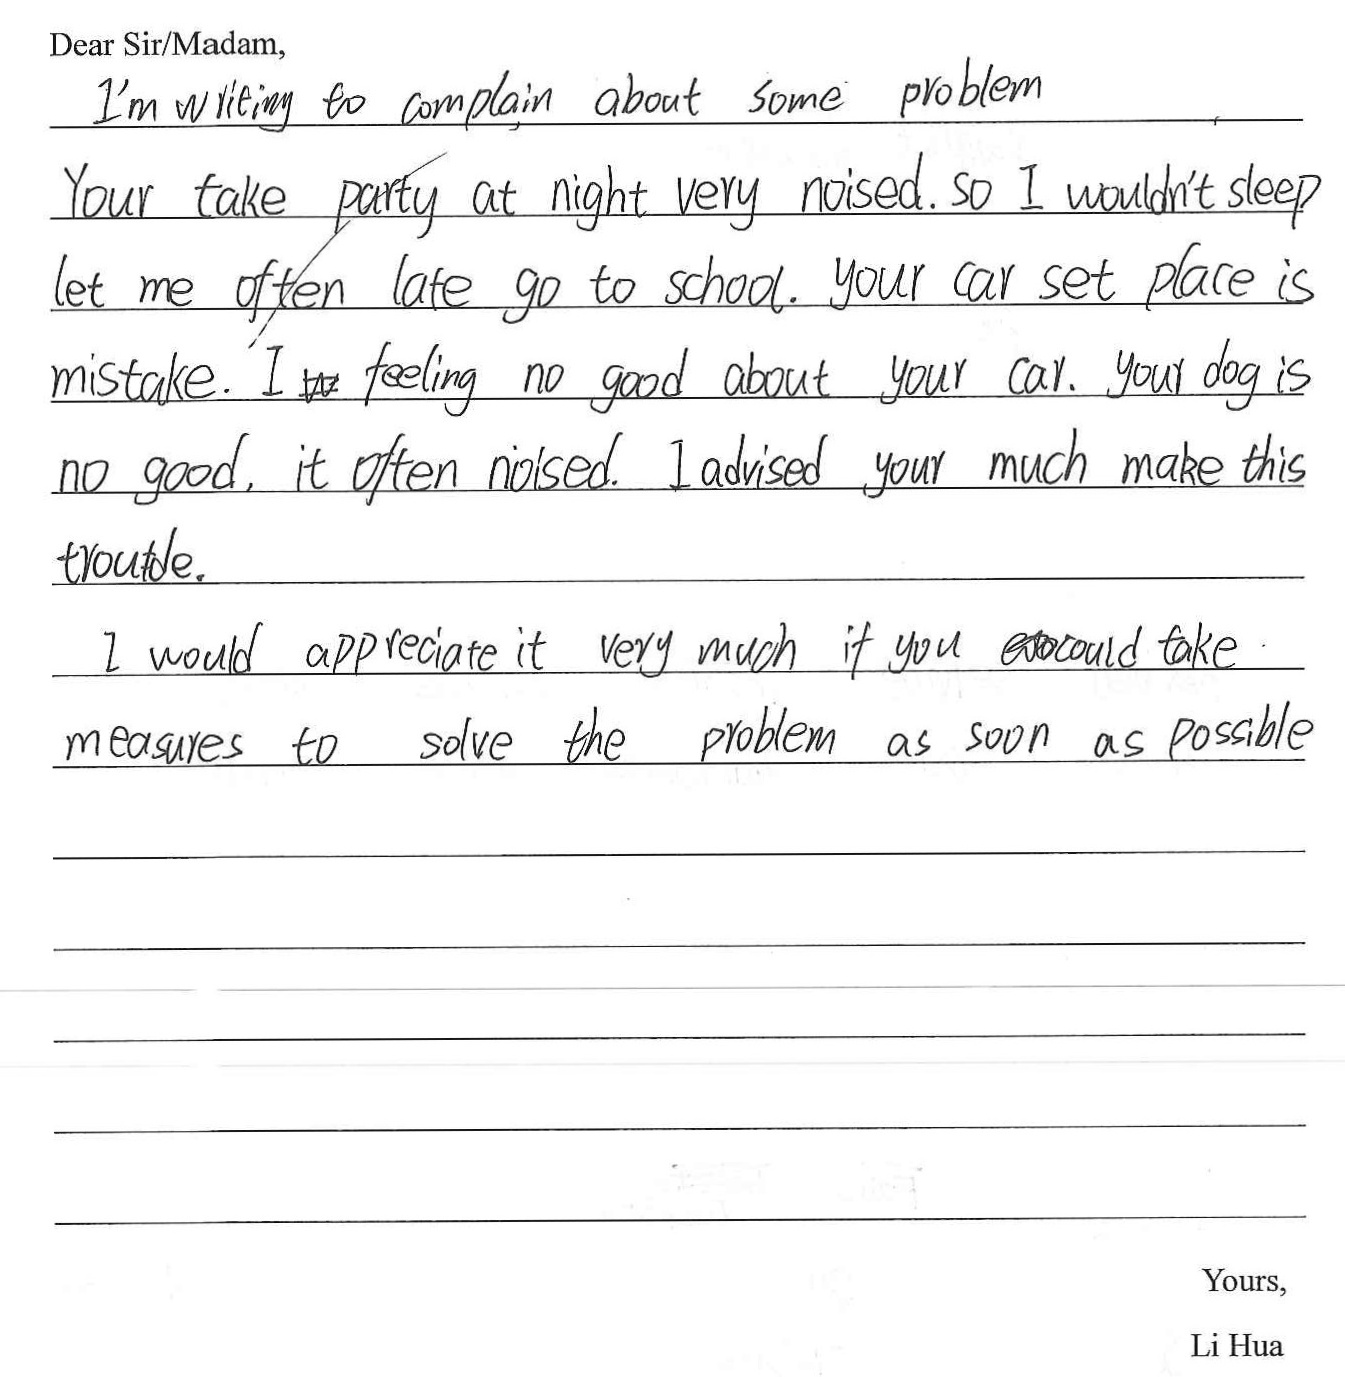 Dear Sir/Madam,
I'm writing to complain about some problem
Your take party at night very noised. so I wouldn't sleep
let me often late go to school. your car set place is
mistake. I feeling no good about your car. your dog is
no good, it often noised. I advised your much make this
trouble.
I would appreciate it very much if you could take
measures to solve the problem as soon as possible
Yours,
Li Hua